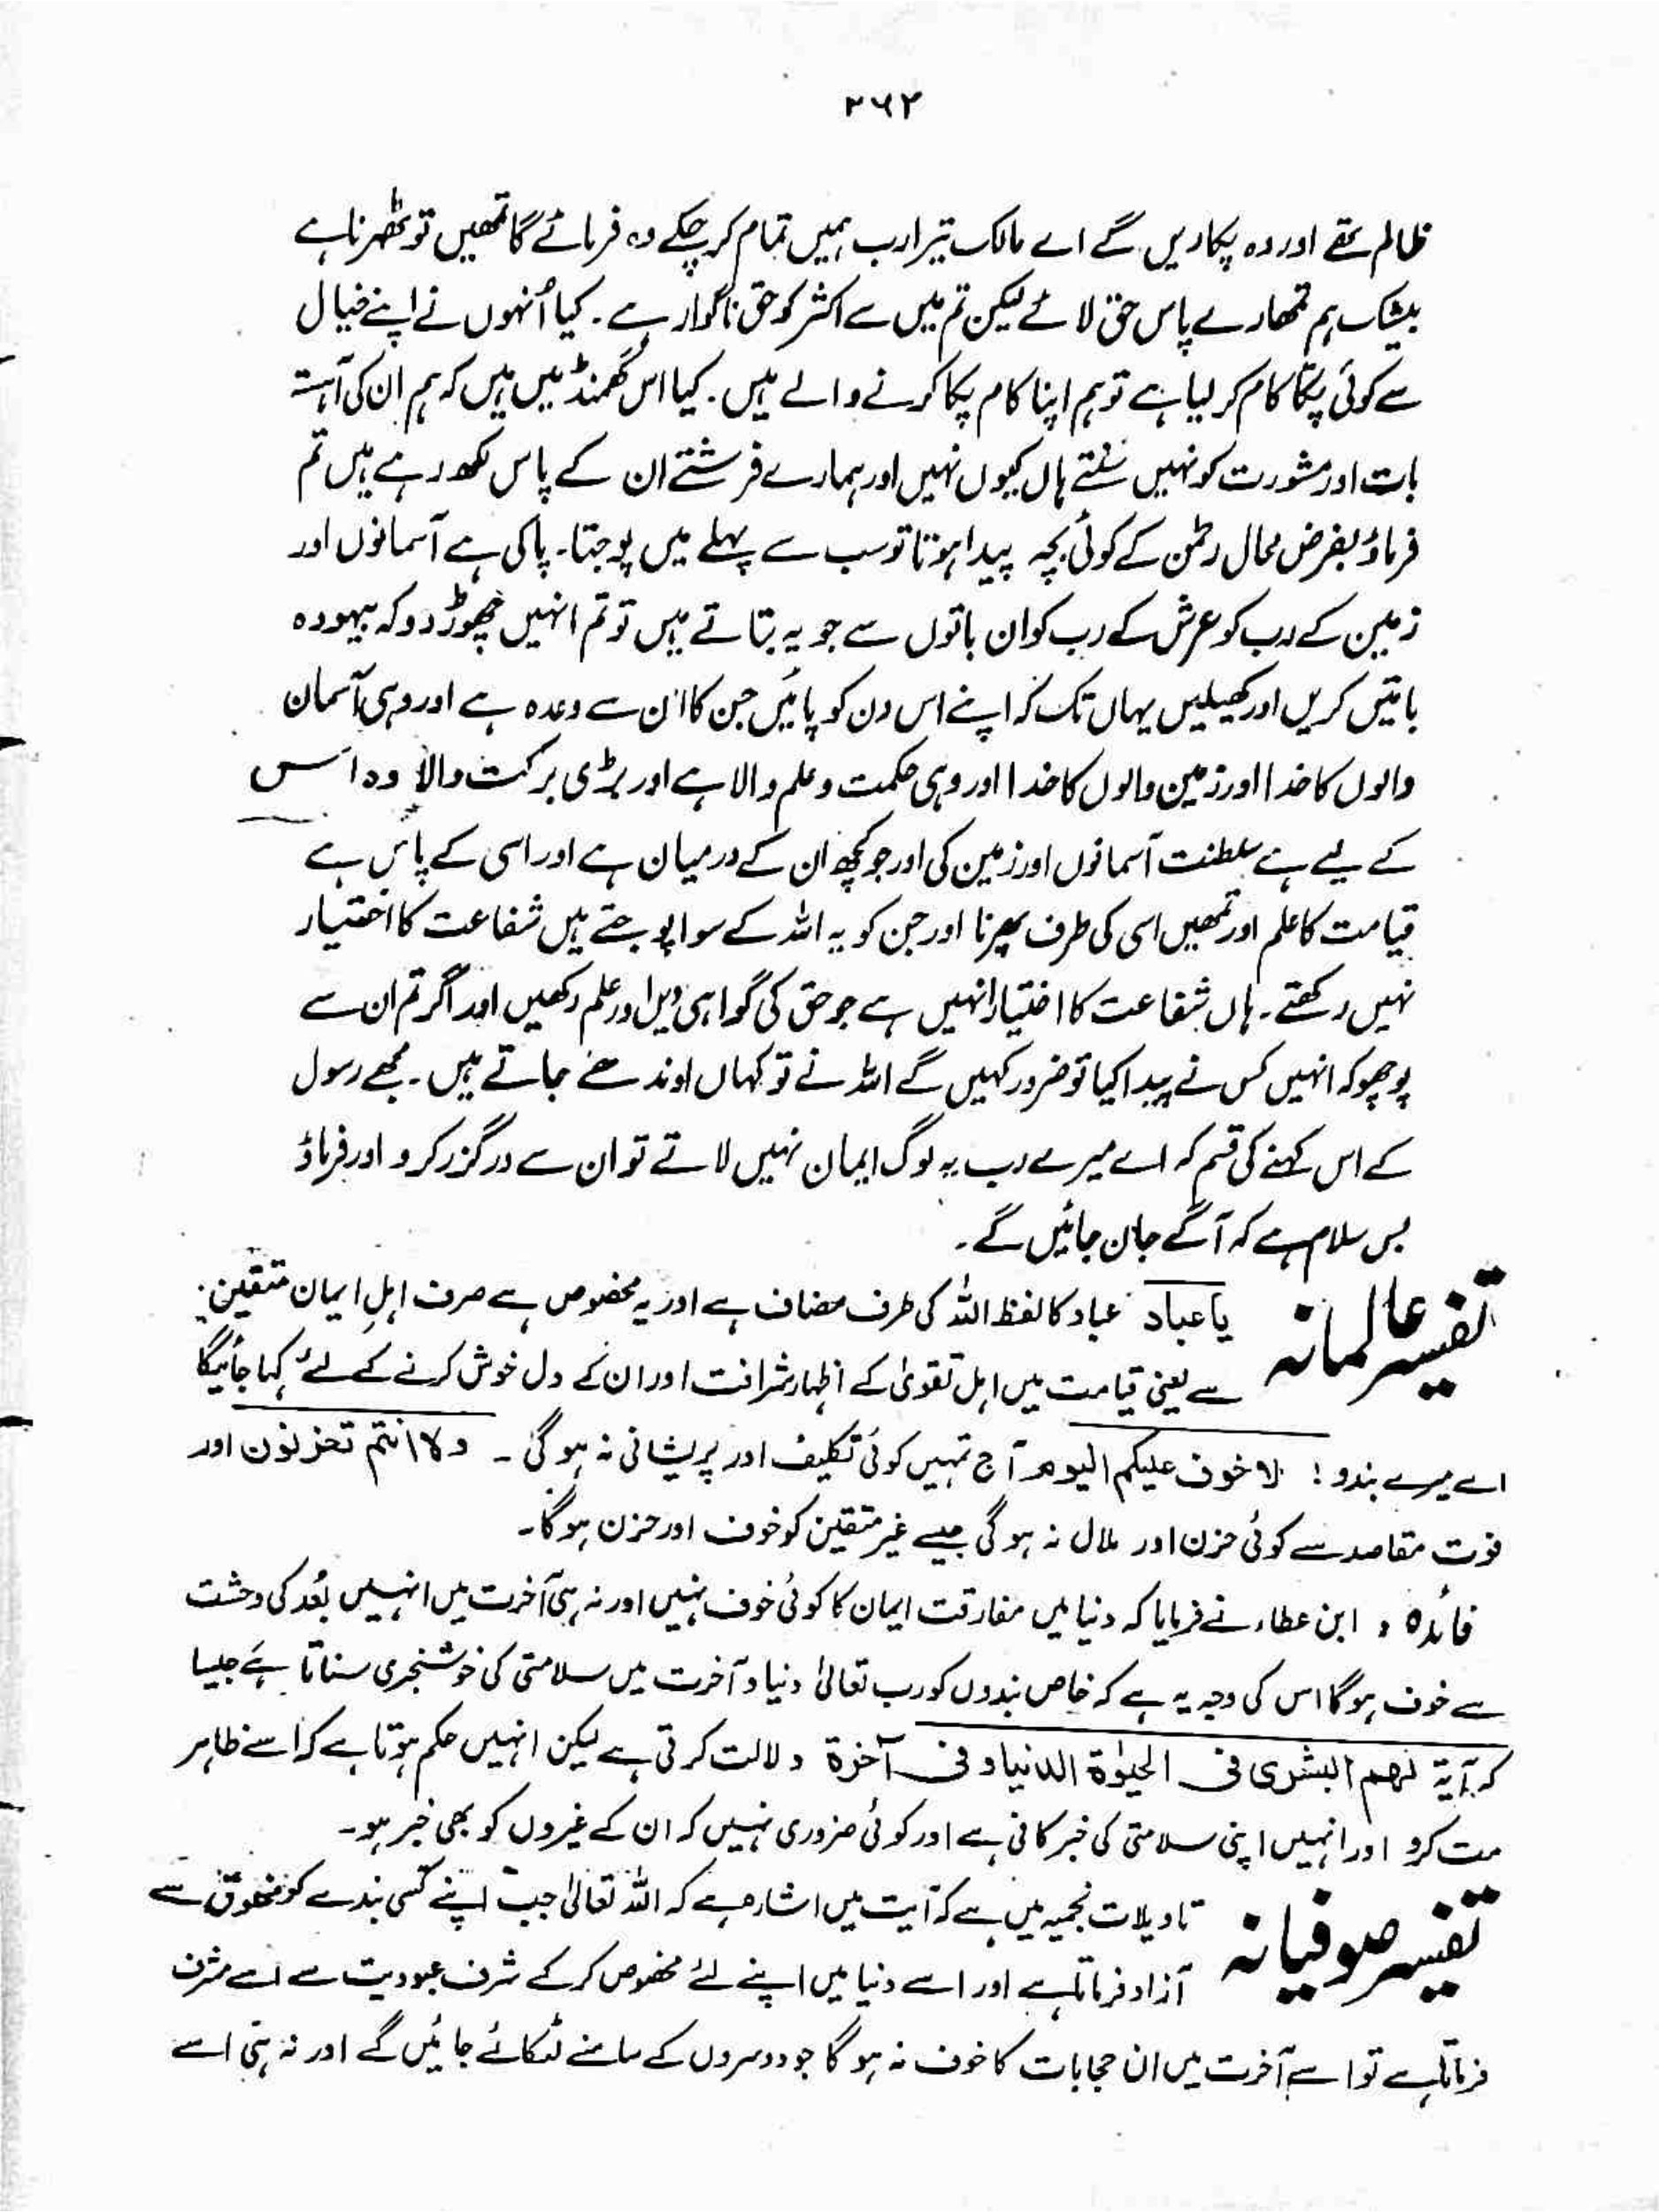 ۳۶۲
ظالم تھے اور وہ پکاریں گے اے مالک تیرا رب ہمیں تمام کر چکے وہ فرمائے گا تمھیں تو ٹھہرنا ہے
بیشک ہم تمھارے پاس حق لائے لیکن تم میں سے اکثر کو حق ناگوار ہے۔ کیا اُنہوں نے اپنے خیال
سے کوئی پکّا کام کر لیا ہے تو ہم اپنا کام پکا کرنے والے ہیں۔ کیا اس گھمنڈ میں ہیں کہ ہم ان کی آہستہ
بات اور مشورت کو نہیں سنتے ہاں کیوں نہیں اور ہمارے فرشتے ان کے پاس لکھ رہے ہیں تم
فرماؤ بفرض محال رحمٰن کے کوئی بچہ پیدا ہوتا تو سب سے پہلے میں پوجتا۔ پاکی ہے آسمانوں اور
زمین کے رب کو عرش کے رب کو ان باتوں سے جو یہ بتاتے ہیں تو تم انہیں چھوڑ دو کہ بیہودہ
باتیں کریں اور کھیلیں یہاں تک کہ اپنے اس دن کو پائیں جن کا ان سے وعدہ ہے اور وہی آسمان
والوں کا خدا اور زمین والوں کا خدا اور وہی حکمت و علم والا ہے اور بڑی برکت والا وہ اس
کے لیے ہے سلطنت آسمانوں اور زمین کی اور جو کچھ ان کے درمیان ہے اور اسی کے پاس ہے
قیامت کا علم اور تمھیں اسی کی طرف پھرنا اور جن کو یہ اللہ کے سوا پوجتے ہیں شفاعت کا اختیار
نہیں رکھتے۔ ہاں شفاعت کا اختیار انہیں ہے جو حق کی گواہی دیں اور علم رکھیں اور اگر تم ان سے
پوچھو کہ انہیں کس نے پیدا کیا تو ضرور کہیں گے اللہ نے تو کہاں اوندھے جاتے ہیں۔ مجھے رسول
کے اس کہنے کی قسم کہ اے میرے رب یہ لوگ ایمان نہیں لاتے تو ان سے درگزر کرو اور فرماؤ
بس سلام ہے کہ آگے جان جائیں گے۔
تفسیر عالمانہ یا عباد عباد کا لفظ اللہ کی طرف مضاف ہے اور یہ مخصوص ہے صرف اہلِ ایمان متقین
سے یعنی قیامت میں اہل تقویٰ کے اظہار شرافت اور ان کے دل خوش کرنے کے لئے کہا جائیگا
اے میرے بندو! لا خوف علیکم الیوم آج تمہیں کوئی تکلیف اور پریشانی نہ ہو گی۔ ولا انتم تحزنون اور
فوت مقاصد سے کوئی حزن اور ملال نہ ہو گی جیسے غیر متقین کو خوف اور حزن ہو گا۔
فائدہ: ابن عطاء نے فرمایا کہ دنیا میں مفارقت ایمان کا کوئی خوف نہیں اور نہ ہی آخرت میں انہیں بُعد کی وحشت
سے خوف ہو گا اس کی وجہ یہ ہے کہ خاص بندوں کو رب تعالیٰ دنیا و آخرت میں سلامتی کی خوشخبری سناتا ہے جیسا
کہ آیۃ لھم البشریٰ فی الحیوٰۃ الدنیا و فی آخرۃ دلالت کرتی ہے لیکن انہیں حکم ہوتا ہے کہ اسے ظاہر
مت کرو اور انہیں اپنی سلامتی کی خبر کافی ہے اور کوئی ضروری نہیں کہ ان کے غیروں کو بھی خبر ہو۔
تفسیر صوفیانہ تاویلات نجمیہ میں ہے کہ آیت میں اشارہ ہے کہ اللہ تعالیٰ جب اپنے کسی بندے کو مخلوق سے
آزاد فرماتا ہے اور اسے دنیا میں اپنے لئے مخصوص کر کے شرف عبودیت سے اسے مشرف
فرماتا ہے تو اسے آخرت میں ان حجابات کا خوف نہ ہو گا جو دوسروں کے سامنے لٹکائے جائیں گے اور نہ ہی اسے